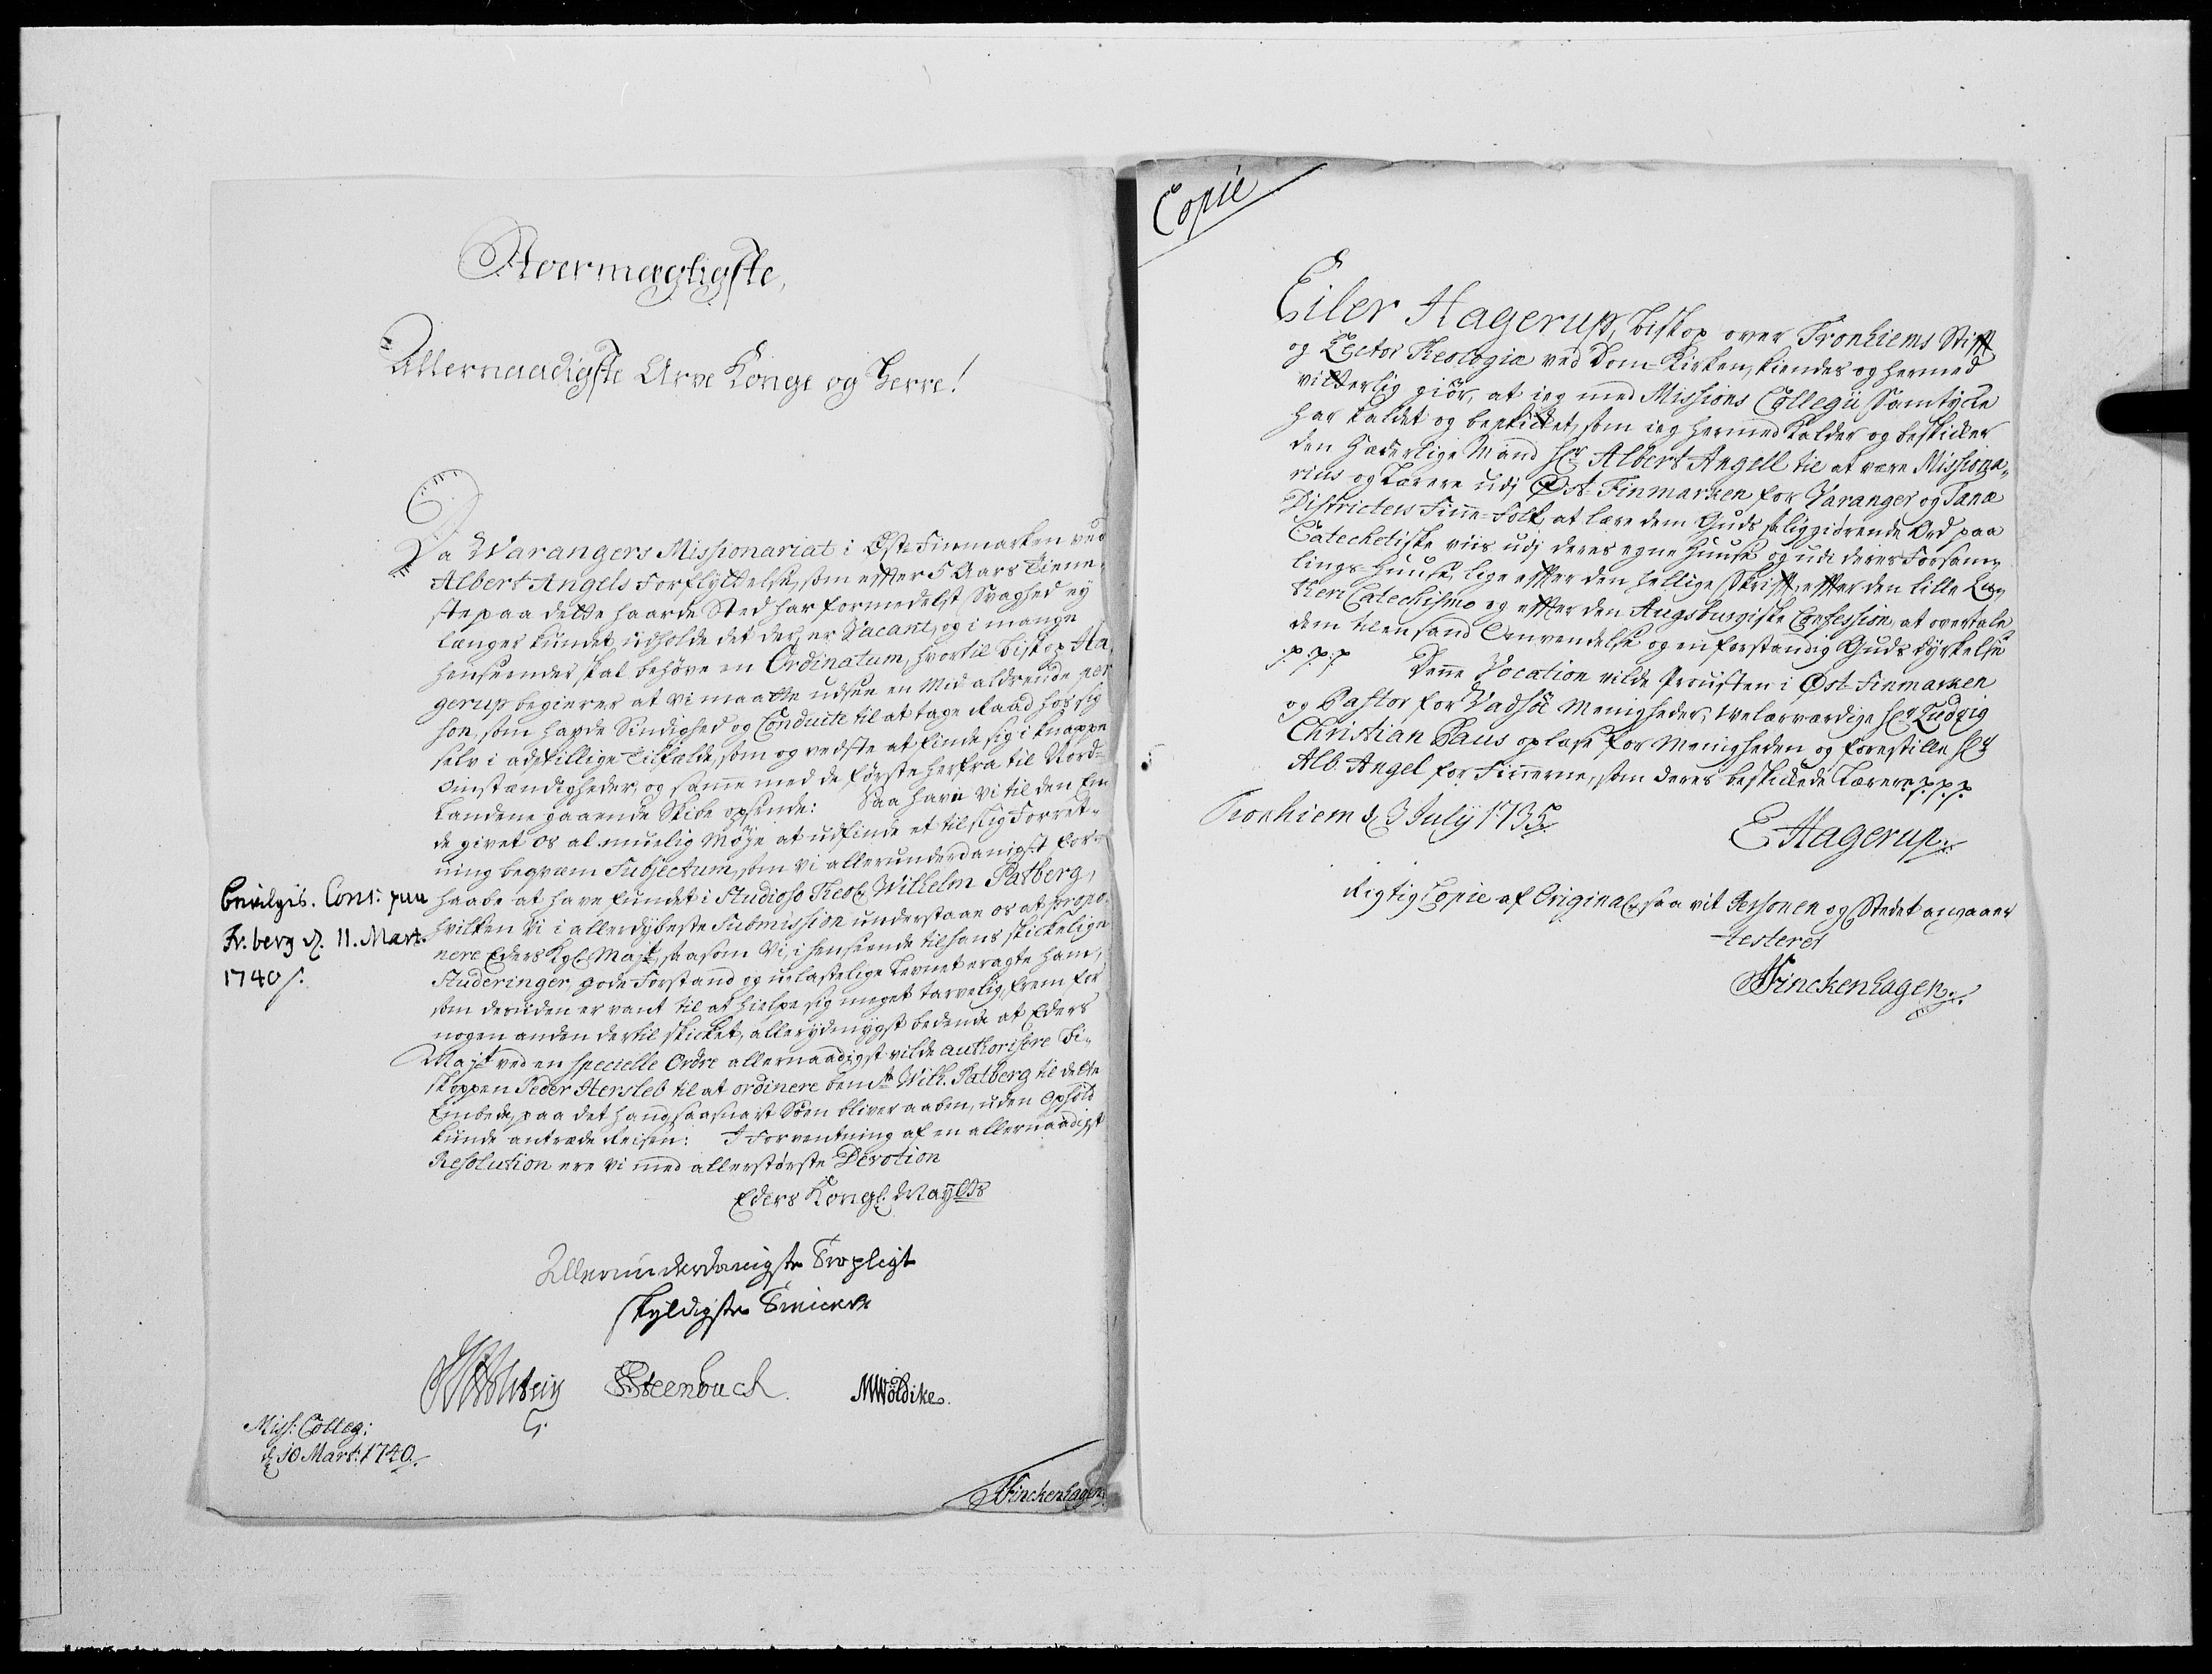 Stoermægtigste,
Allernaadigste Arve Konge og Herre!
Da Warangers Missionariat i Øst-Finmarken ved
Albert Angels Forflyttelse, som efter 5 Aars Tiene-
ste paa dette haarde Sted har formedelst Svaghed ey
længer kundet udholde det der, er Vacant, og i mange
henseender skal behöve en Ordinatum, hvortil Biskop Ha-
gerup begierer at vi maatte udsee en Mid-aldrende Per-
son, som havde Sindighed og Conduite til at tage Raad hos sig
selv i adskillige Tilfælde, som og vedste at finde sig i knappe
Omstændigheder, og samme med de første herfra til Nord-
Landene gaaende Skibe opsende: Saa have Vi til den En-
de givet os al muelig Møye at udfinde et til slig Forret-
ning beqvem Subjectum, som vi allerunderdanigst for-
haabe at have fundet i Studioso Theol. Wilhelm Patberg,
hvilken Vi i allerdybeste Submission understaae os at propo-
nere Eders Kgl. Majt, saasom Vi, i henseende til hans skikkelige
Studeringer, gode Forstand og ulastelige Levnet eragte ham,
som desuden er vant til at hielpe sig meget tarvelig, frem for
nogen anden dertil skicket, allerydmygst bedende at Eders
Majt ved en specielle Ordre allernaadigst vilde authorisere Bi-
skoppen Peder Hersleb til at ordinere bemte Wilh. Patberg til dette
Embede, paa det hand, saasnart Søen bliver aaben, uden Ophold
kunde antræde Reisen: I Forventning af en allernaadigst
Resolution ere Vi med allerstörste Devotion
Eders Kongl. Mayts
Allerunderdanigste Tropligt
skyldigste Tienere
JLHolstein
Steenbuch.
MWöldike.
Bevilges. Cons: paa
Fr.berg d. 11. Mart.
1740/.
Miss: Colleg:
d. 10 Mart: 1740.
Finckenhagen
Copie
Eiler Hagerup, Biskop over Tronhiems Stift
og Lector Theologiæ ved Dom-Kirken, kiendes og hermed
vitterlig giör, at jeg med Missions Collegii Samtycke
har kaldet og beskicket, som jeg hermed kalder og beskicker
den Hæderlige Mand Hr Albert Angell til at være Missiona-
rius og Lærere udj Øst-Finmarken for Varanger og Tana
Districters Finne-Folk, at lære dem Guds saliggiørende Ord paa
Catechetiske viis udj deres egne Huuse og udi deres Forsam-
lings-Huuse, lige efter den hellige Skrift, efter den lille Lu-
theri Catechismo og efter den Augsburgiske Confession, at overtale
dem til en sand Omvendelse og en forstandig Guds dyrkelse
p.p.p Denne Vocation vilde Prousten i Øst-Finmarken
og Pastor for Vadsöe Menigheder, Welærværdige Hr Ludvig
Christian Paus oplæse for Menigheden og forestille Hr
Alb. Angel for Finnerne, som deres beskickede Lærere p.p.p.
Tronhiem d. 3 July 1735.
E Hagerup.
Rigtig Copie af Original, saa vit Personen og Stedet angaaer
testerer
Finckenhagen.